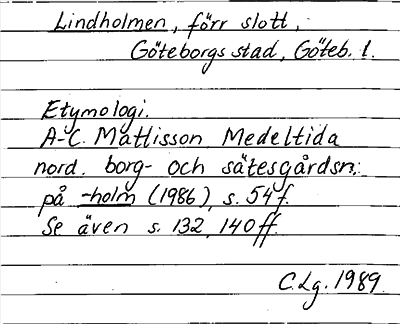 Lindholmen, förr slott,
Göteborgs stad, Göteb. l.
Etymologi.
A-C. Mattisson Medeltida
nord. borg- och sätesgårdsn.
på -holm (1986), s. 54f.
Se även s. 132, 140ff.
C.Lg. 1989.